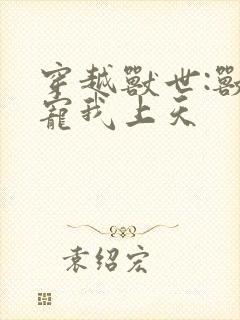 穿越獸世:獸
寵我上天
袁绍宏